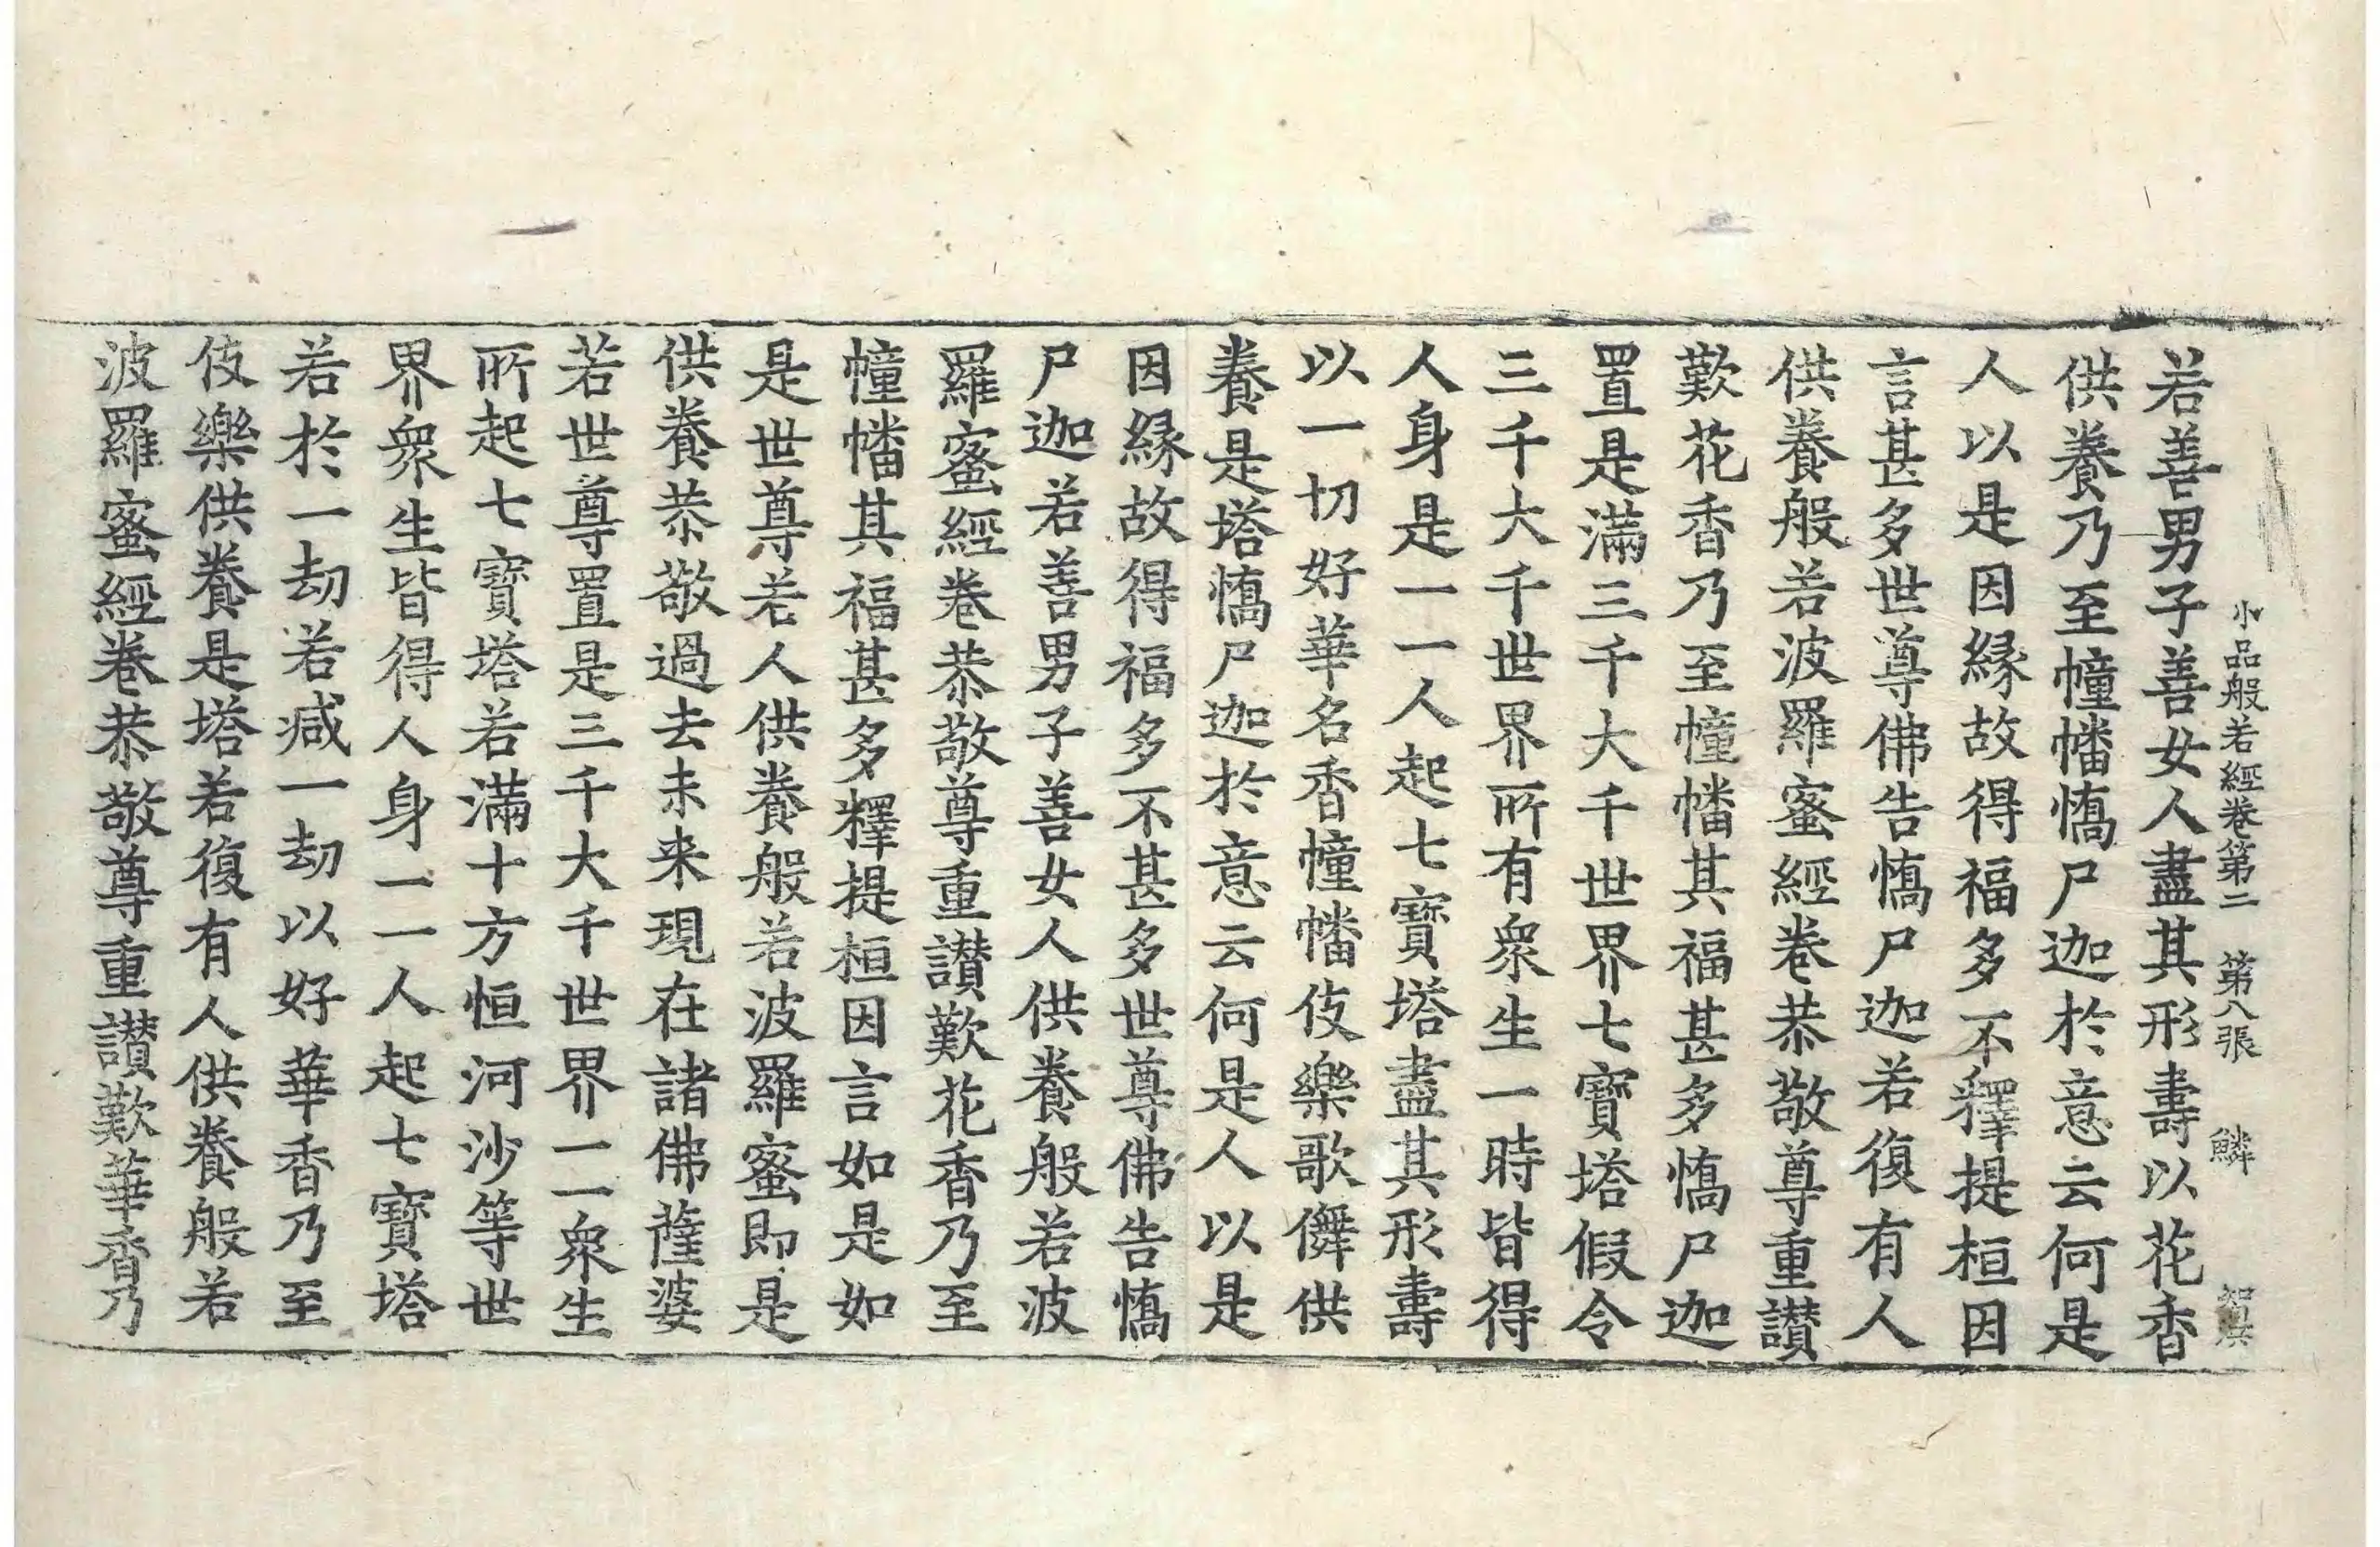 小品般若經卷第二　第八張　鱗
若善男子善女人盡其形壽以花香
供養乃至幢幡憍尸迦於意云何是
人以是因緣故得福多不釋提桓因
言甚多世尊佛告憍尸迦若復有人
供養般若波羅蜜經卷恭敬尊重讃
歎花香乃至幢幡其福甚多憍尸迦
置是滿三千大千世界七寶塔假令
三千大千世界所有衆生一時皆得
人身是一一人起七寶塔盡其形壽
以一切好華名香幢幡伎樂歌儛供
養是塔憍尸迦於意云何是人以是
因緣故得福多不甚多世尊佛告憍
尸迦若善男子善女人供養般若波
羅蜜經卷恭敬尊重讃歎花香乃至
幢幡其福甚多釋提桓因言如是如
是世尊若人供養般若波羅蜜即是
供養恭敬過去未来現在諸佛薩婆
若世尊置是三千大千世界一一衆生
所起七寶塔若滿十方恒河沙等世
界衆生皆得人身一一人起七寶塔
若於一劫若減一劫以好華香乃至
伎樂供養是塔若復有人供養般若
波羅蜜經卷恭敬尊重讃歎華香乃